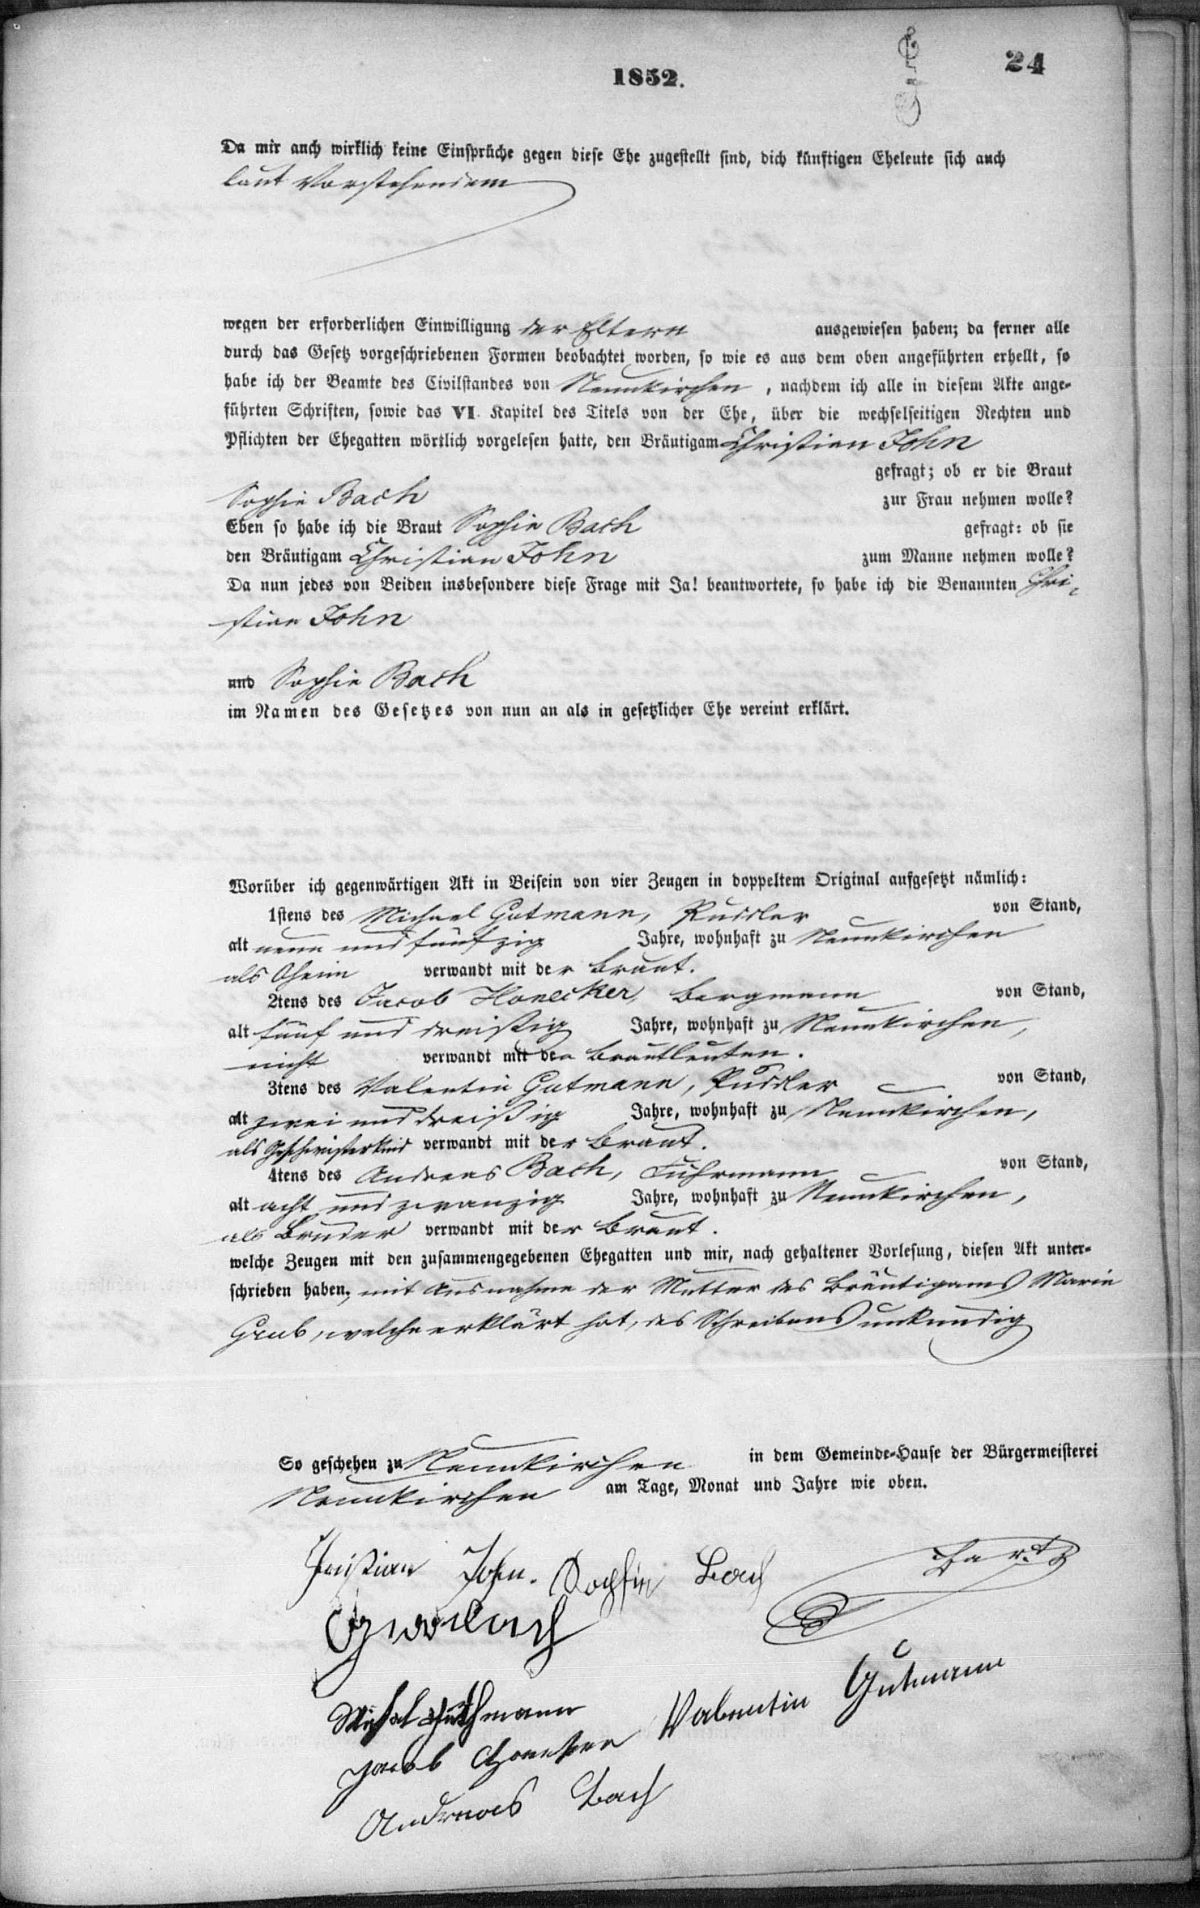 1852.
24
Da mir auch wirklich keine Einsprüche gegen diese Ehe zugestellt sind, dich künftigen Eheleute sich auch
laut Vorstehendem
wegen der erforderlichen Einwilligung der Eltern ausgewiesen haben; da ferner alle
durch das Gesetz vorgeschriebenen Formen beobachtet worden, so wie es aus dem oben angeführten erhellt, so
habe ich der Beamte des Civilstandes von Neunkirchen, nachdem ich alle in diesem Akte ange-
führten Schriften, sowie das VI. Kapitel des Titels von der Ehe, über die wechselseitigen Rechten und
Pflichten der Ehegatten wörtlich vorgelesen hatte, den Bräutigam Christian John
gefragt; ob er die Braut
Sophie Bach zur Frau nehmen wolle?
Eben so habe ich die Braut Sophie Bach gefragt: ob sie
den Bräutigam Christian John zum Manne nehmen wolle?
Da nun jedes von Beiden insbesondere diese Frage mit Ja! beantwortete, so habe ich die Benannten Chri-
stian John
und Sophie Bach
im Namen des Gesetzes von nun an als in gesetzlicher Ehe vereint erklärt.
Worüber ich gegenwärtigen Akt in Beisein von vier Zeugen in doppeltem Original aufgesetzt nämlich:
1stens des Michael Gutmann, Puddler von Stand,
alt neun und fünfzig Jahre, wohnhaft zu Neunkirchen
als Oheim verwandt mit der Braut.
2tens des Jacob Honecker, Bergmann von Stand,
alt fünf und dreißig Jahre, wohnhaft zu Neunkirchen,
nicht verwandt mit den Brautleuten.
3tens des Valentin Gutmann, Puddler von Stand,
alt zwei und dreißig Jahre, wohnhaft zu Neunkirchen,
als Geschwisterkind verwandt mit der Braut.
4tens des Andreas Bach, Fuhrmann von Stand,
alt acht und zwanzig Jahre, wohnhaft zu Neunkirchen,
als Bruder verwandt mit der Braut.
welche Zeugen mit den zusammengegebenen Ehegatten und mir, nach gehaltener Vorlesung, diesen Akt unter-
schrieben haben, mit Ausnahme der Mutter des Bräutigams Marie
Grub, welche erklärt hat, des Schreibens unkundig
So geschehen zu Neunkirchen in dem Gemeinde-Hause der Bürgermeisterei
Neunkirchen am Tage, Monat und Jahre wie oben.
Christian John. Sophie Bach
Valentin Gutmann
Andreas Bach